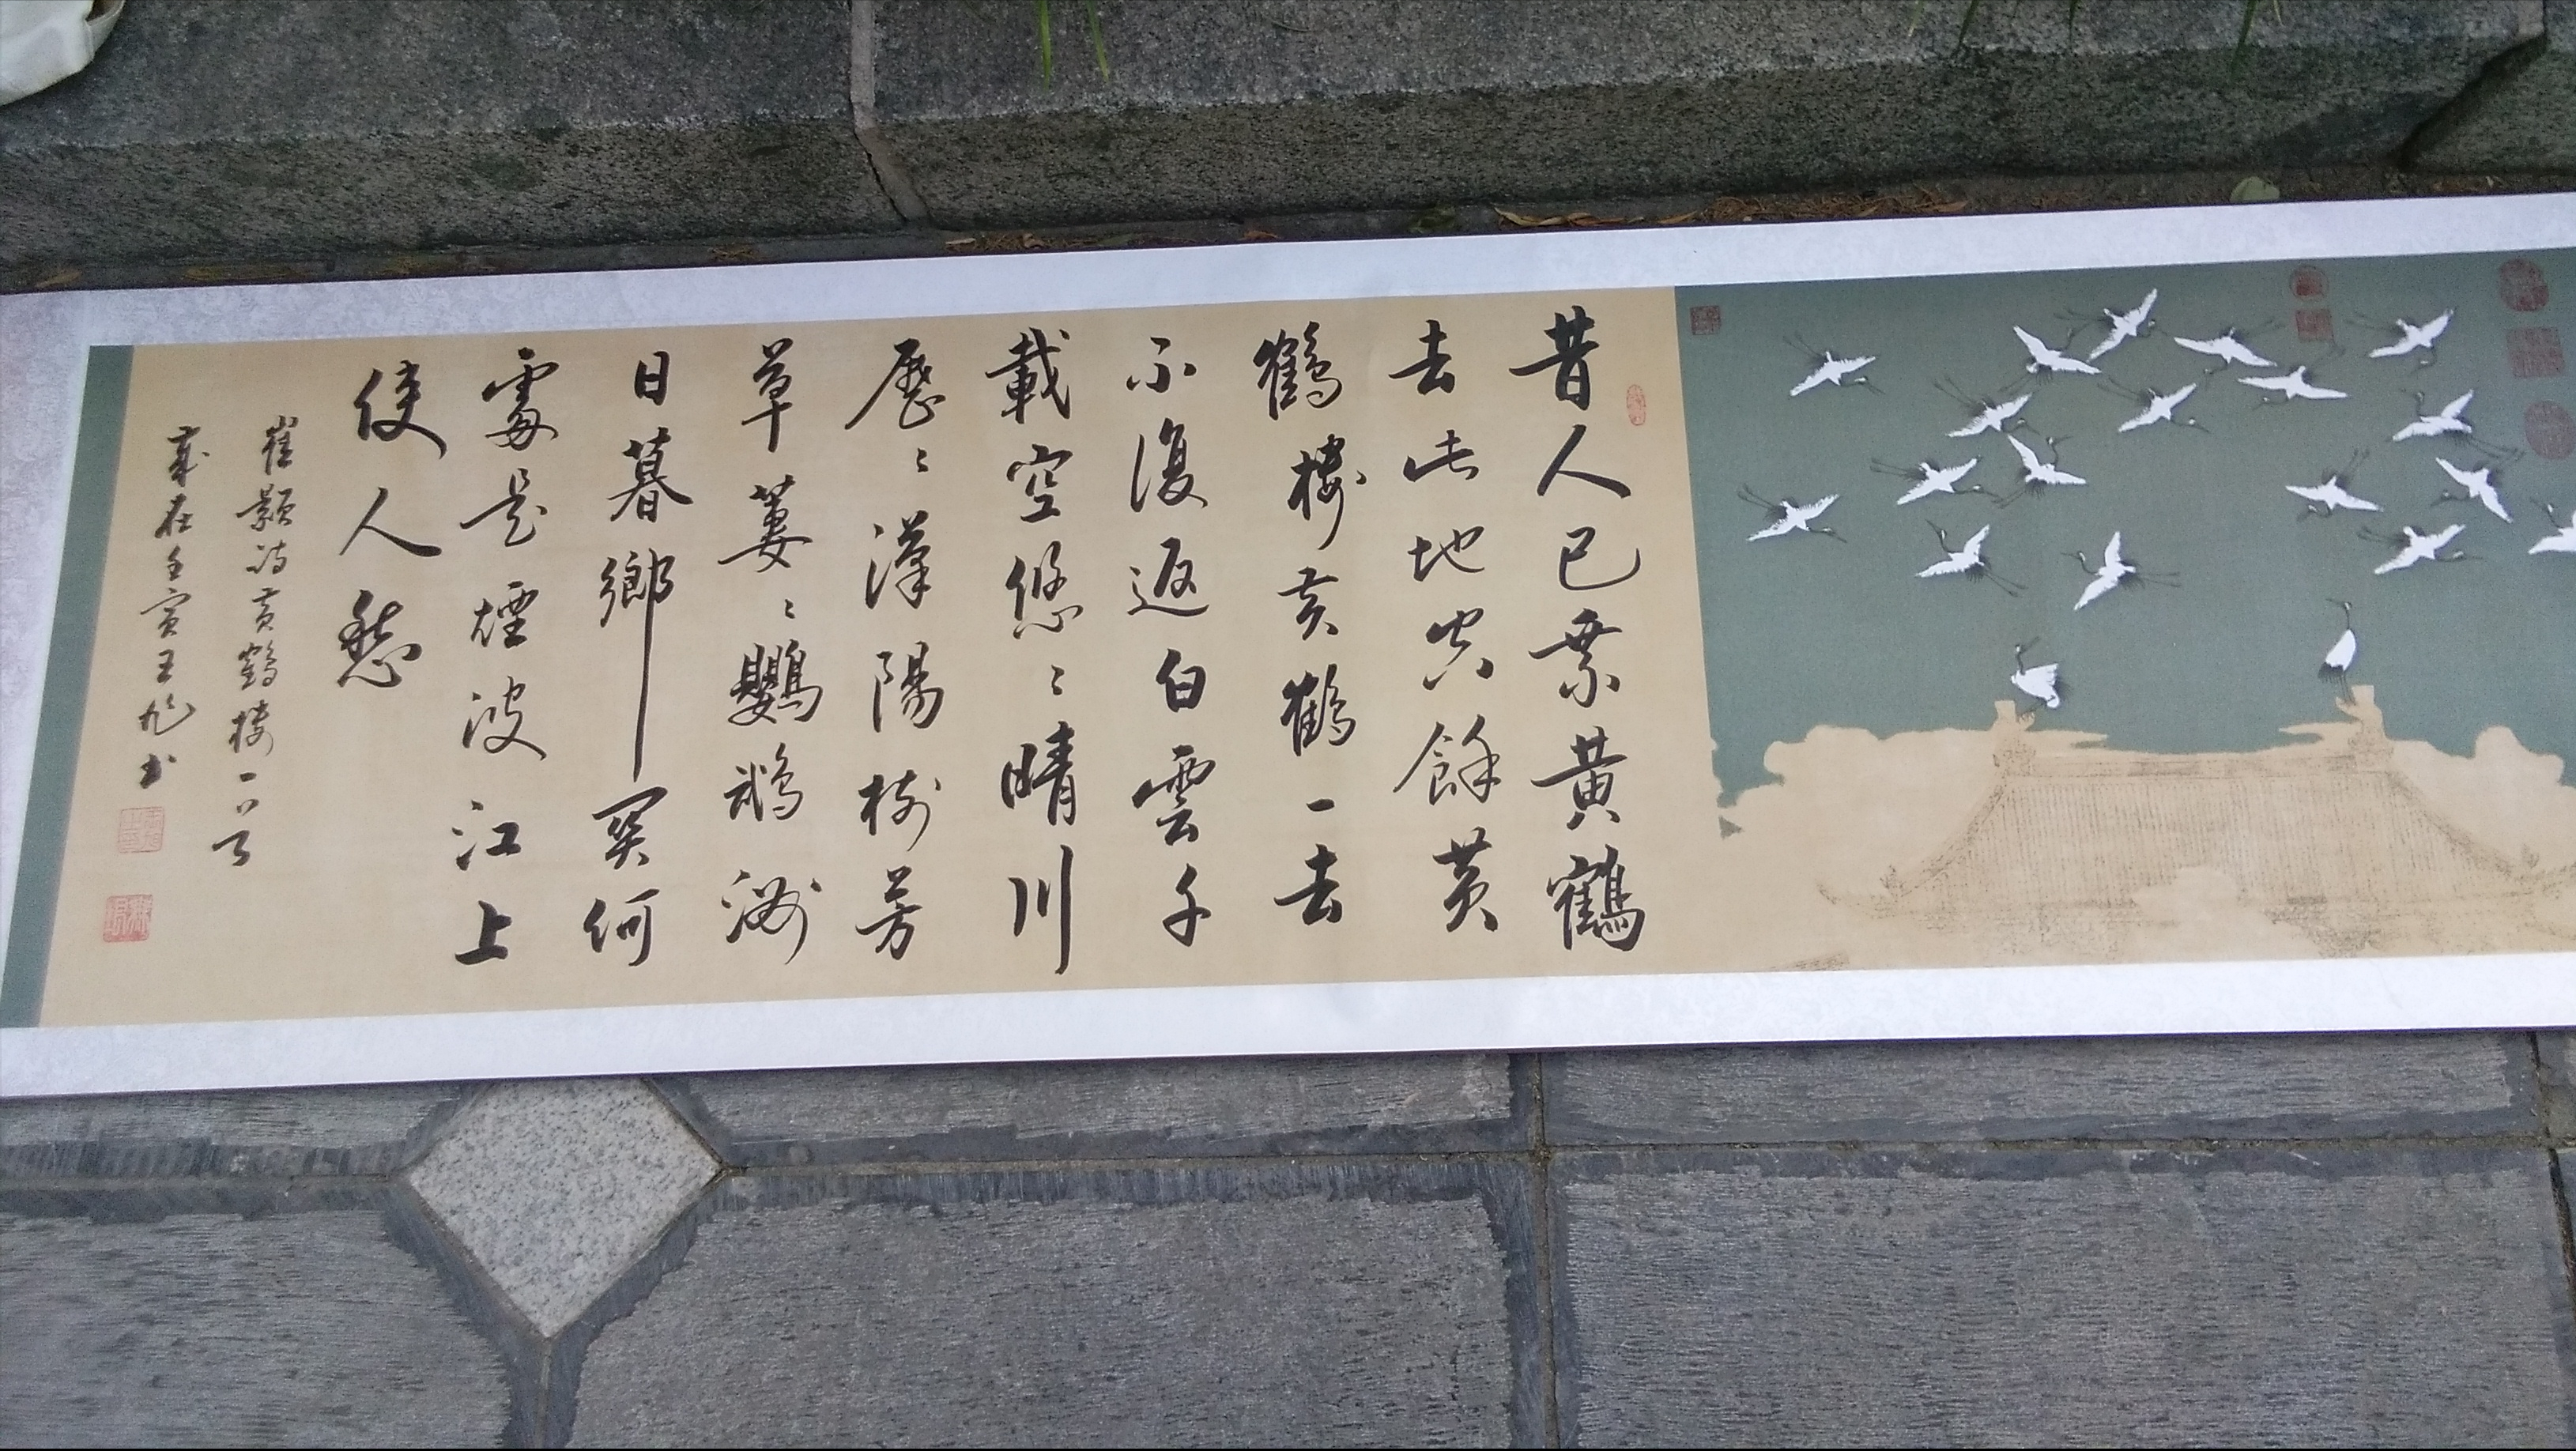 昔人已乘黃鶴
去此地空餘黃
鶴樓黃鶴一去
不復返白雲千
載空悠〻晴川
歷〻漢陽樹芳
草萋〻鸚鵡洲
日暮鄉關何
處是煙波江上
使人愁
崔顥詩黃鶴樓一首
歲在壬寅王旭書